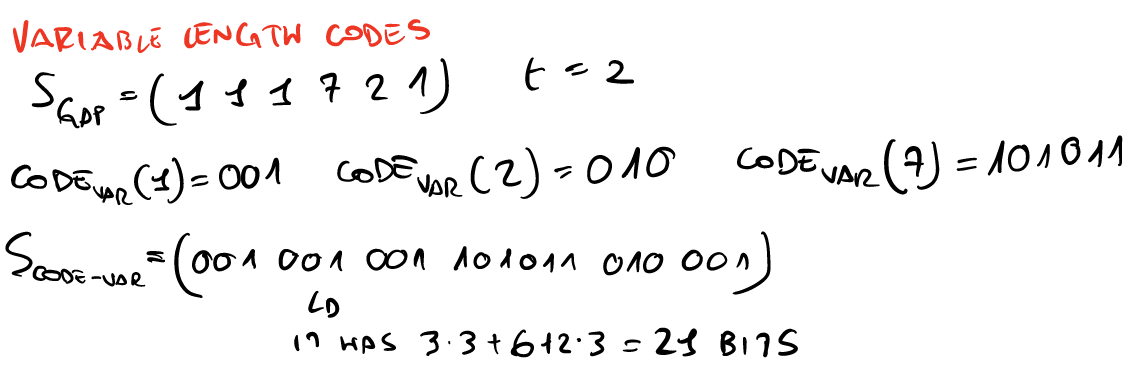 VARIABLE LENGTH CODES
S_GAP = (1 1 1 7 2 1) t = 2
CODE_VAR(1) = 001 CODE_VAR(2) = 010 CODE_VAR(7) = 101011
S_CODE-VAR = (001 001 001 101011 010 001)
↳
IT HAS 3·3+6+2·3 = 21 BITS